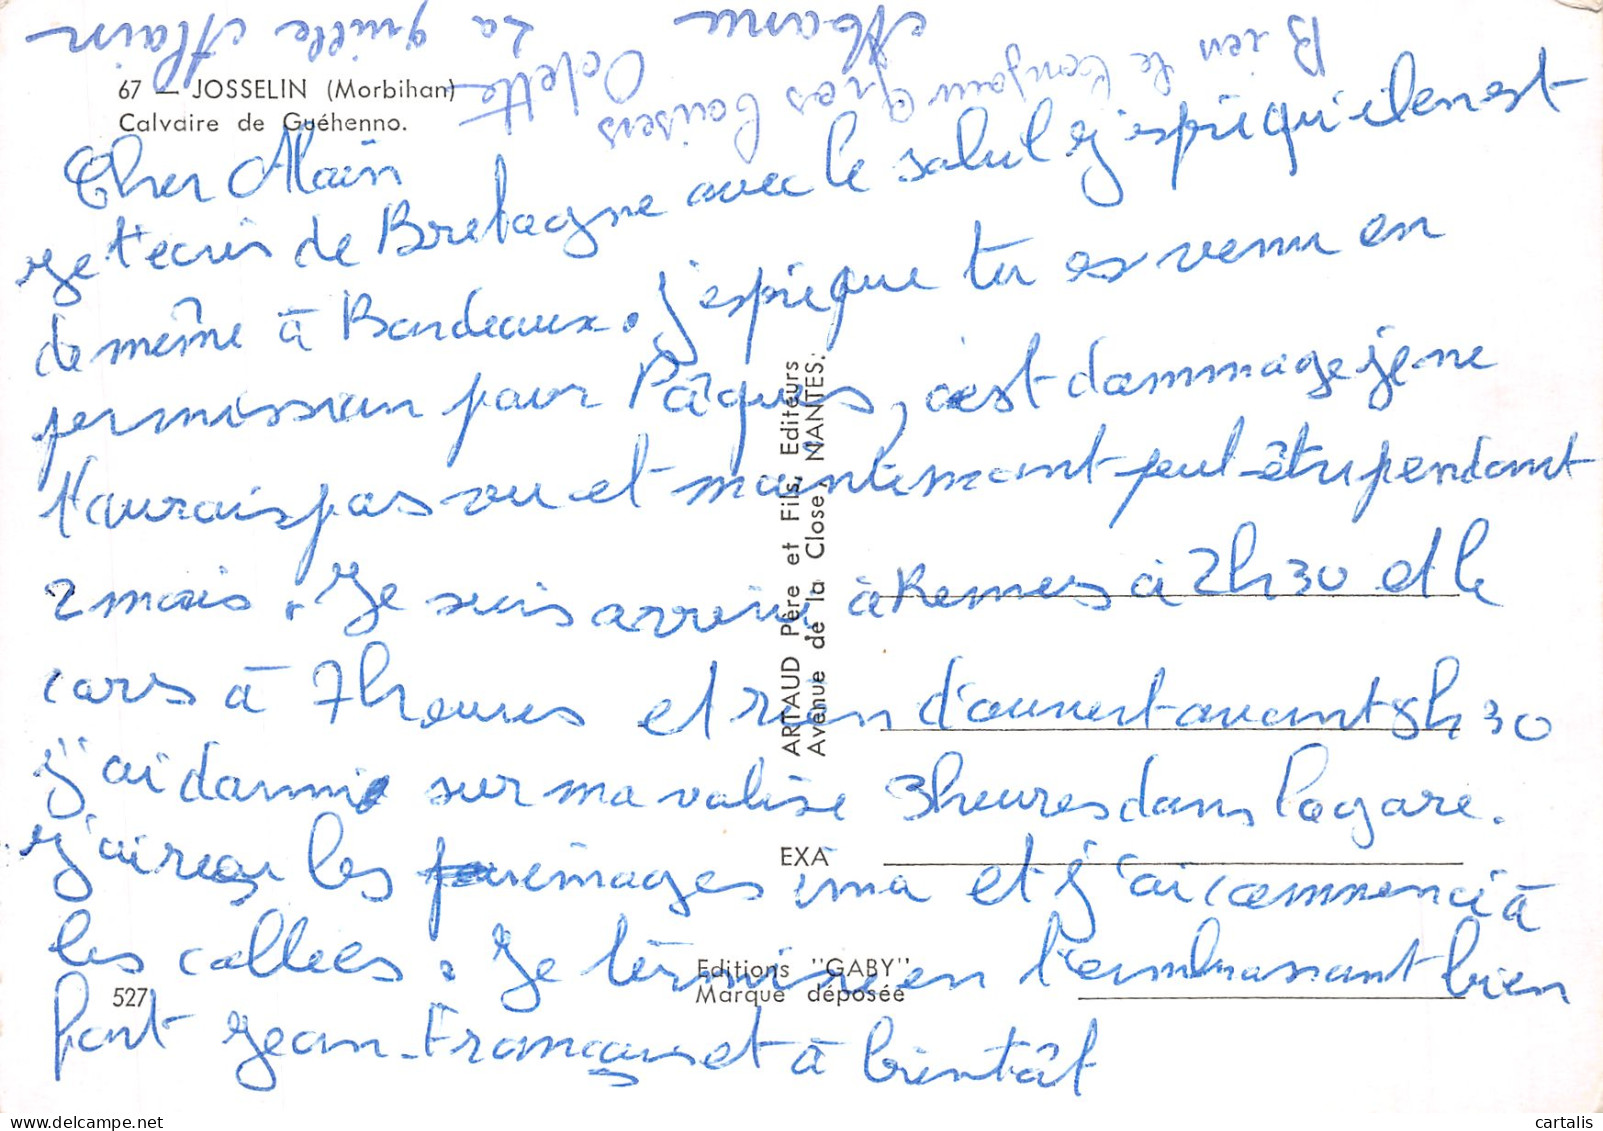 La quille Alain
Manu
Odette
Gros baisers
Bien le bonjour
67 — JOSSELIN (Morbihan)
Calvaire de Guéhenno.
Cher Alain
Je t'ecris de Bretagne avec le salut j'espère qu'il en est
de même à Bordeaux. J'espère que tu es venu en
permission pour Pâques, c'est dommage je ne
t'aurais pas vu et maintenant peut-être pendant
2 mois. Je suis arrivé à Rennes à 2h30 et le
cars à 7 heures et rien d'ouvert avant 5h30
j'ai dormi sur ma valise 3 heures dans la gare.
J'ai reçu les images ima et j'ai commencé à
les collées. Je termine en t'embrassant bien
fort Jean-François et à bientôt
ARTAUD Père et Fils, Editeurs
Avenue de la Close, NANTES.
EXA
Editions "GABY"
Marque déposée
527
cartalis